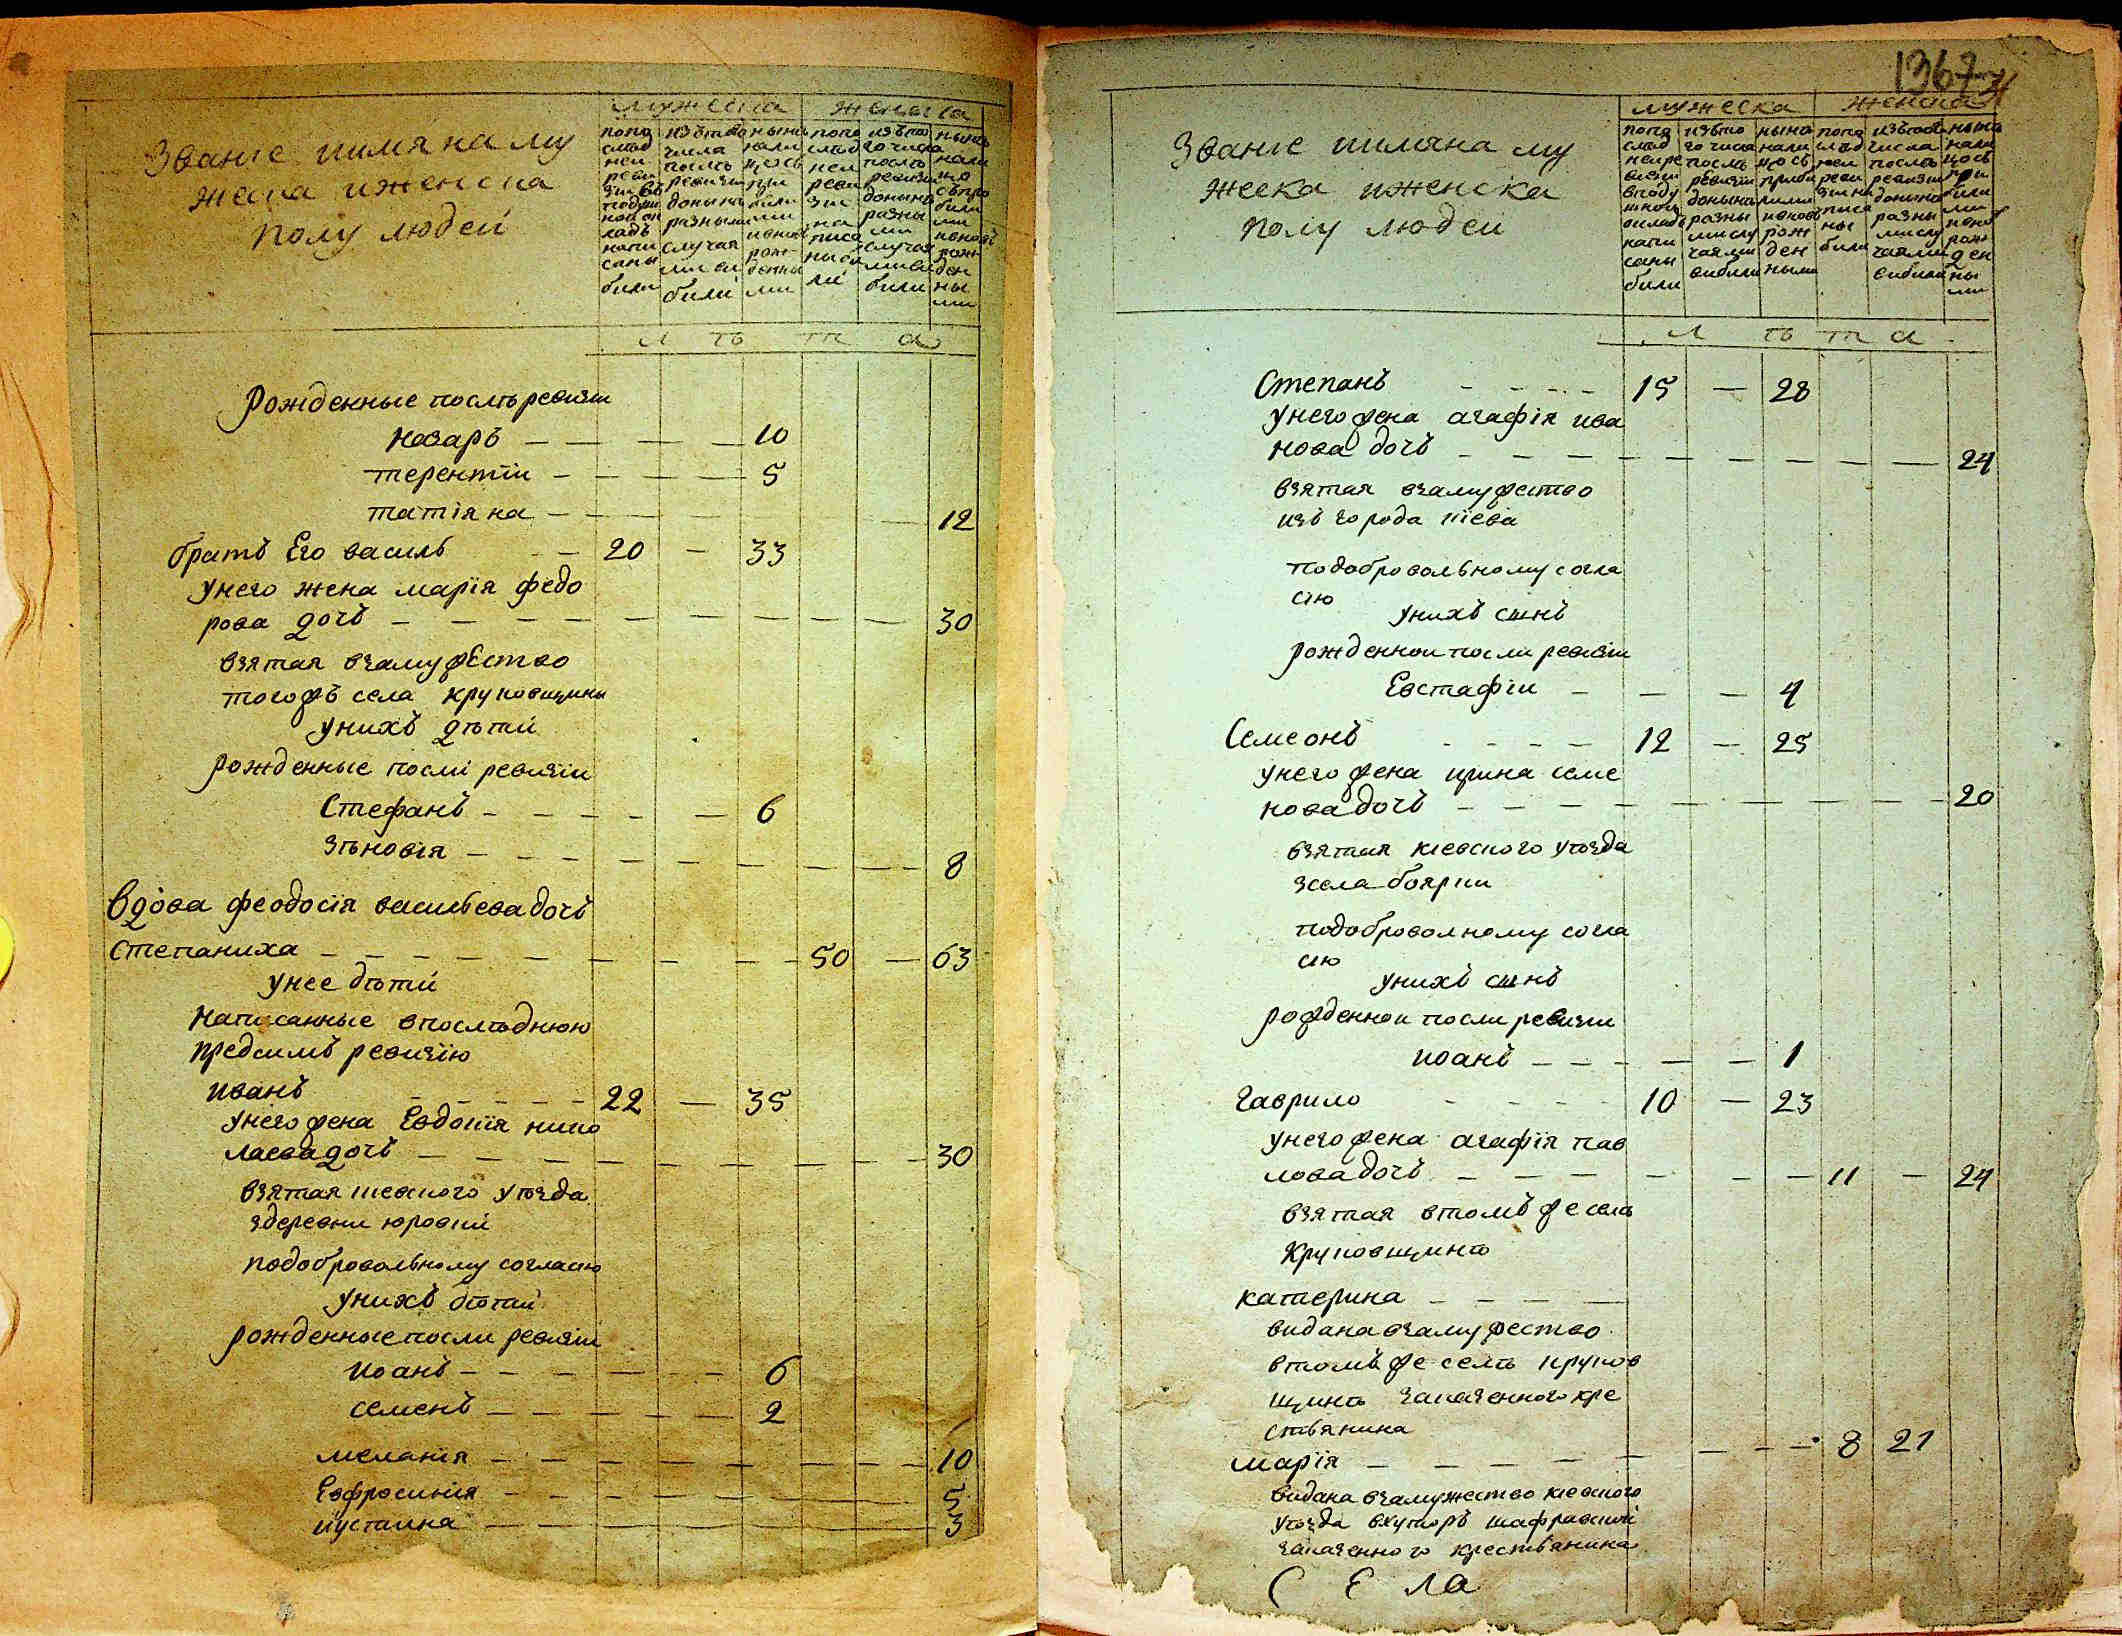 мужеска женска
Званіе иимяна му
жеска иженска
полу людей
попо
след
ней
реви
зіи въ
подуш
ной ок
ладъ
напи
саны
были
изътого
числа
послѣ
ревизіи
донына
разными
случая
ми ви
были
нына
нали
цосъ
при
были
ми
ивновъ
рож
денны
ми
попо
след
ней
реви
зіи
на
писа
ны би
ли
изъто
го числа
послѣ
ревизіи
донына
разны
ми
случая
миви
были
нына
нали
цо
съпри
были
ми
ивновъ
рож
ден
ны
ми
л ѣ т а
Рожденные послѣ ревизіи
назаръ — — — — 10
терентіи — — — — 5
татіяна — — — — — 12
братъ Его василь — 20 — 33
унего жена марія федо
рова дочъ — — — — — — — 30
взятая взамужество
тогожъ села круковщины
унихъ дѣти
рожденные послі ревизіи
Стефанъ — — — — — 6
Зѣновія — — — — — — — 8
вдова феодосія васильева дочъ
степаниха — — — — — — — 50 — 63
унее дѣти
написанные впослѣднюю
предсимъ ревизію
иванъ — — — — 22 — 35
унего жена Евдокія нико
лаева дочъ — — — — — — — 30
взятая кіевского уѣзда
здеревни юровки
подобровольному согласію
унихъ дѣти
рожденные посли ревизіи
иоанъ — — — — — 6
семенъ — — — — — 2
меланія — — — — — — — 10
Евфросинія — — — — — — 5
иустина — — — — — — 3
1367
мужеска женска
Званіе иимяна му
жеска иженска
полу людеи
попо
след
ней ре
визіи
вподу
шной
окладъ
напи
саны
были
изъто
го числа
послѣ
ревизіи
донына
разны
ми слу
чаями
вибыли
нына
нали
цо съ
прибы
лими
ивновъ
рож
ден
ными
попо
след
ней
реви
зіи на
писа
ны
были
изътого
числа
послѣ
ревизіи
донына
разны
ми слу
чаями
вибыли
нына
нали
цосъ
при
были
ми
ивновъ
рож
ден
ны
ми
л ѣ т а
Степанъ — — — — 15 — 28
унего жена агафія ива
нова дочъ — — — — — — — — — 24
взятая взамужество
изъ города кіева
подобровольному согла
сію
унихъ сынъ
рожденнои посли ревизіи
Евстафіи — — — 4
Семеонъ — — — — 12 — 25
унего жена ирина семе
нова дочъ — — — — — — — — — 20
взятая кіевского уѣзда
зсела боярки
подоброволному согла
сію
унихъ сынъ
рожденнои посли ревизіи
иоанъ — — — — — 1
гаврило — — — — 10 — 23
унего жена агафія пав
лова дочъ — — — — — — — 11 — 24
взятая втомъ же селѣ
круковщинѣ
катерина — — — —
видана взамужество
втомъ же селѣ круков
щинѣ заказенного кре
стьянина
марія — — — — — — — — 8 21
видана взамужество кіевского
уѣзда вхуторъ шафравскій
заказенного крестьянина
С Е ла